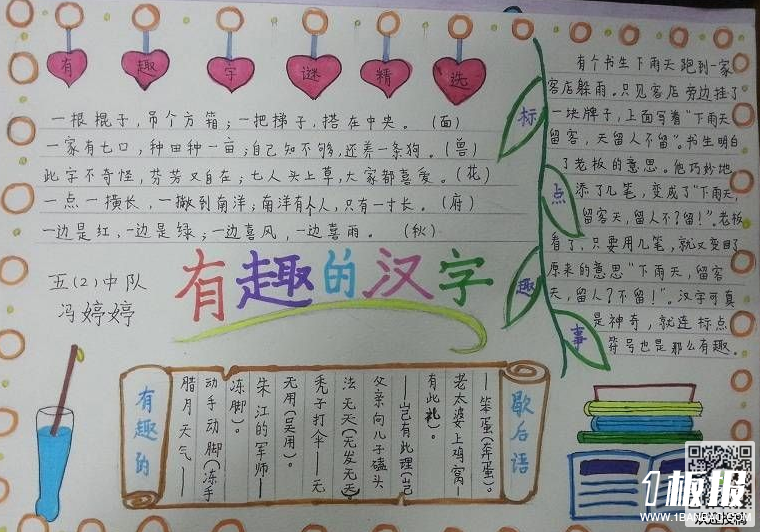 有趣字谜精选
一根棍子，吊个方箱；一把梯子，搭在中央。（面）
一家有七口，种田种一亩；自己知不够，还养一条狗。（兽）
此字不奇怪，芬芳又自在；七人头上草，大家都喜爱。（花）
一点一横长，一撇到南洋；南洋有个人，只有一寸长。（府）
一边是红，一边是绿；一边喜风，一边喜雨。（秋）
五(2)中队
冯婷婷
有趣的汉字
标点趣事
有个书生下雨天跑到一家
客店躲雨。只见客店旁边挂了
一块牌子，上面写着“下雨天
留客，天留人不留”。书生明白
了老板的意思。他巧妙地
添了几笔，变成了“下雨天，
留客天，留人不？留！”。老板
看了，只要用几笔，就又变回了
原来的意思“下雨天，留客
天，留人？不留！”。汉字可真
是神奇，就连标点
符号也是那么有趣。
歇后语
老太婆上鸡窝—
—笨蛋(奔蛋)。
有此礼)。
—岂己有此理(岂
父亲向儿子磕头
法无天(无发无天)
秃子打伞——无
无用(吴用)。
朱江的军师—
冻脚)。
动手动脚(冻手
腊月天气—
有趣的
1板报
WWW.1BANBAO.COM